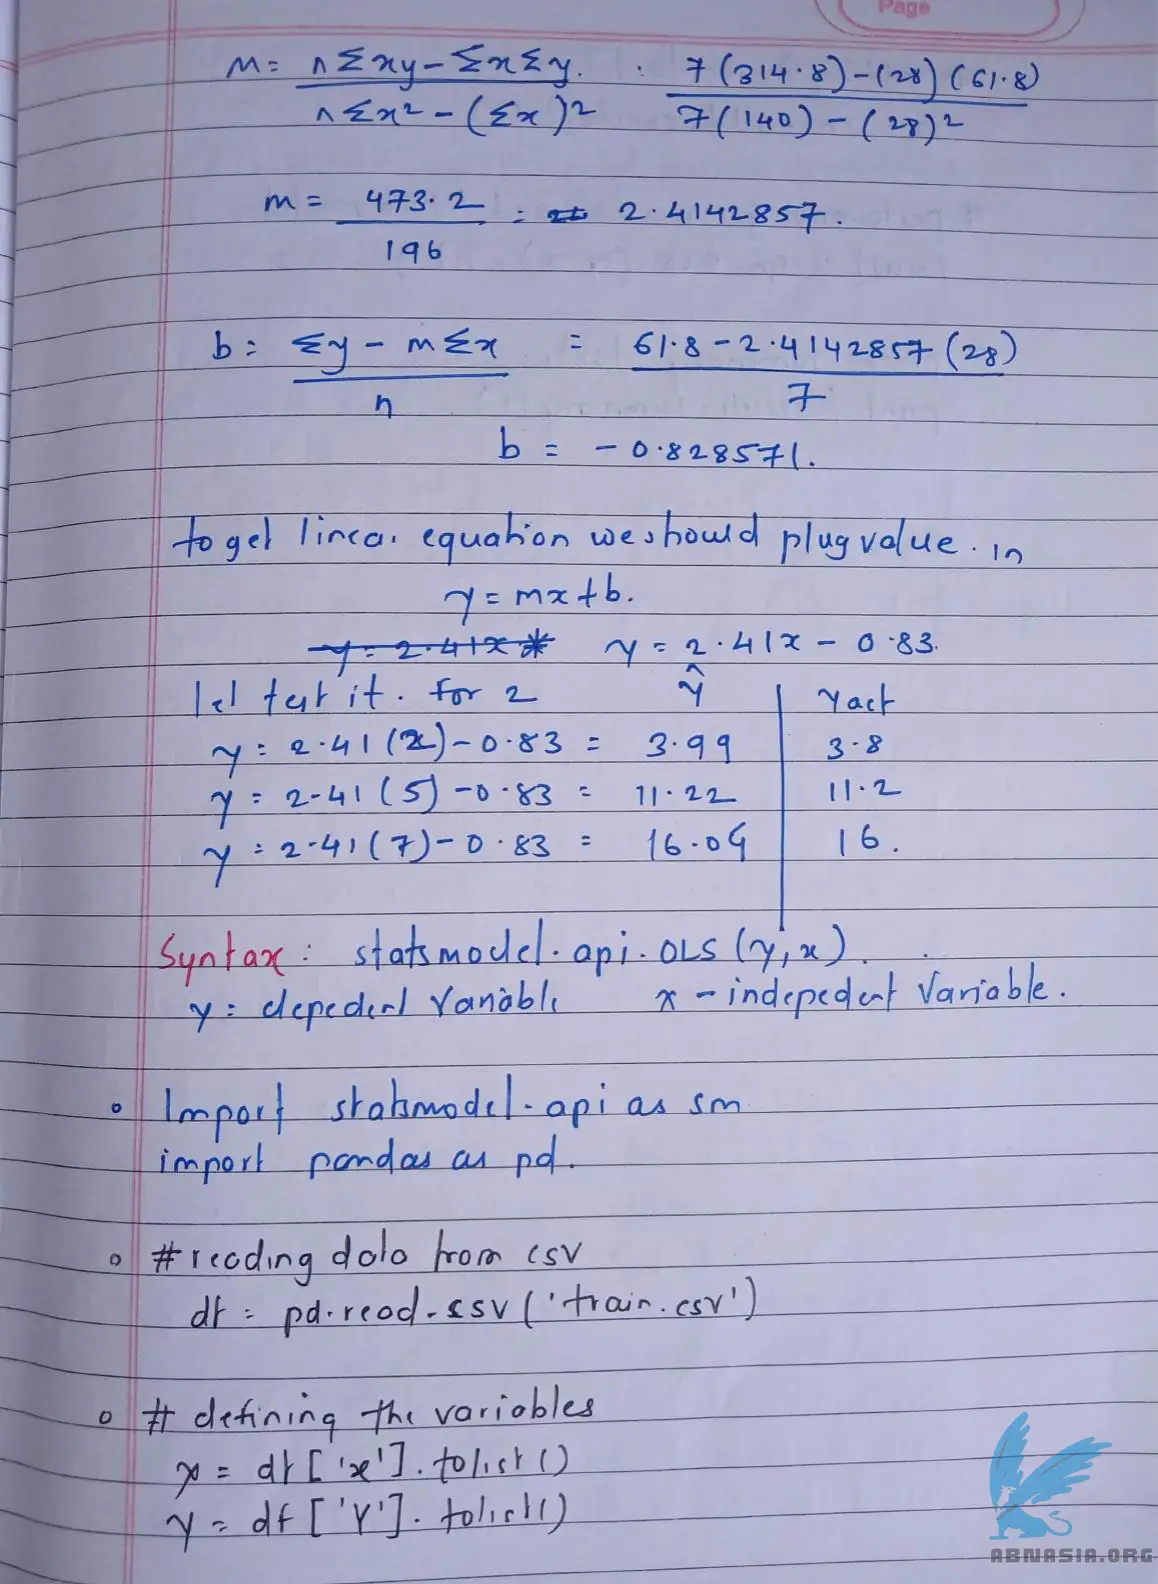 Page
m = n Σxy - Σx Σy. : 7(314.8) - (28)(61.8)
n Σx² - (Σx)² 7(140) - (28)²
m = 473.2 = 2.4142857.
196
b = Σy - mΣx = 61.8 - 2.4142857(28)
n 7
b = - 0.828571.
to get linear equation we should plug value. in
y = mx + b.
y = 2.41x y = 2.41x - 0.83.
let test it. for 2 ŷ Yact
y = 2.41(2) - 0.83 = 3.99 3.8
y = 2.41(5) - 0.83 = 11.22 11.2
y = 2.41(7) - 0.83 = 16.04 16.
Syntax: statsmodel.api.OLS(y,x).
y = depedent Variable x - indepedent Variable.
Import statsmodel.api as sm
import pandas as pd.
#reading data from csv
df = pd.read-csv('train.csv')
# defining the variables
x = df['x'].tolist()
y = df['Y'].tolist()
ABNASIA.ORG